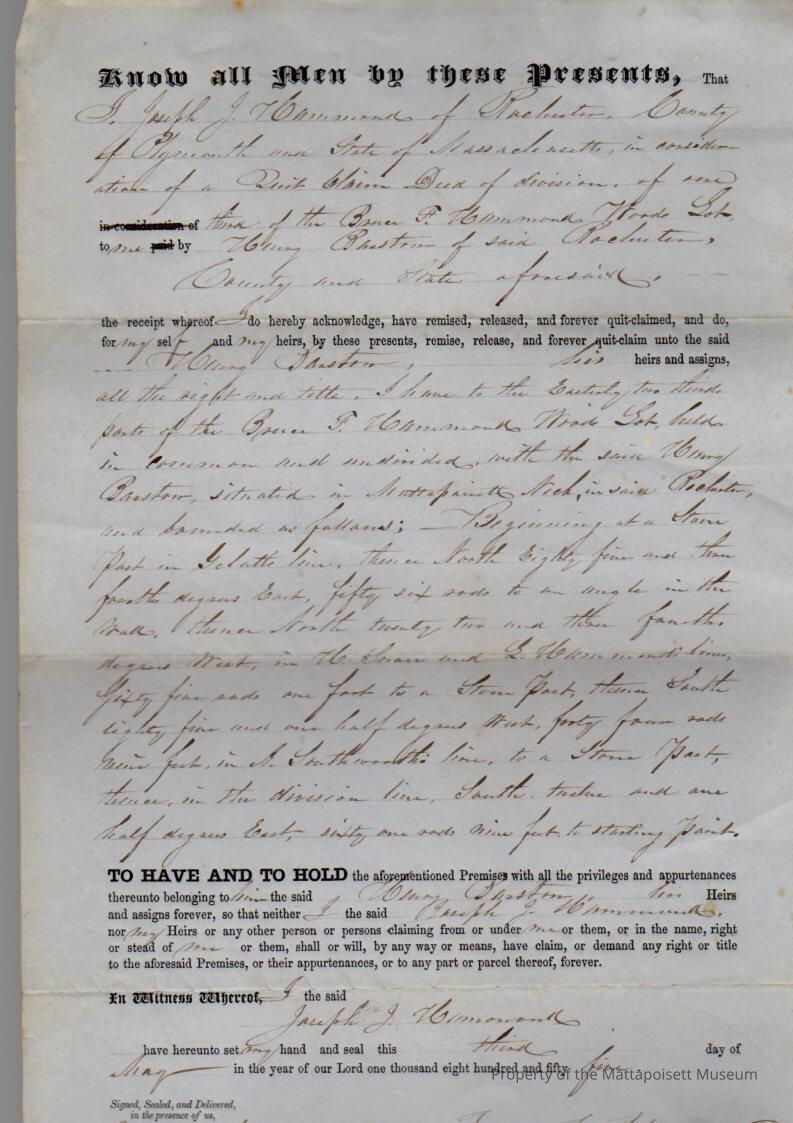 Know all Men by these Presents, That
I, Joseph J. Hammond of Rochester, County
of Plymouth and State of Massachusetts, in consider-
ation of a Quit Claim Deed of division, of one
in consideration of third of the Bruce F. Hammond Woods Lot,
to me paid by Henry Barstow of said Rochester,
County and State aforesaid,
the receipt whereof I do hereby acknowledge, have remised, released, and forever quit-claimed, and do,
for my self and my heirs, by these presents, remise, release, and forever quit-claim unto the said
Henry Barstow, his heirs and assigns,
all the right and title, I have to the Easterly two thirds
parts of the Bruce F. Hammond Woods Lot, held
in common and undivided, with the said Henry
Barstow, situated in Mattapoisett Neck, in said Rochester,
and bounded as follows; – Beginning at a Stone
Post in line, thence North Eighty five and three
fourths degrees East, fifty six rods to an angle in the
wall, thence North twenty two and three fourths
degrees West, in H. and L. Hammonds line,
Sixty five rods one foot to a Stone Post, thence South
eighty five and one half degrees West, forty four rods
nine feet, in A. Southworth's line, to a Stone Post,
thence, in the division line, South twelve and one
half degrees East, sixty one rods nine feet to starting point.
TO HAVE AND TO HOLD the aforementioned Premises with all the privileges and appurtenances
thereunto belonging to him the said Henry Barstow, his Heirs
and assigns forever, so that neither I the said Joseph J. Hammond,
nor my Heirs or any other person or persons claiming from or under me or them, or in the name, right
or stead of me or them, shall or will, by any way or means, have claim, or demand any right or title
to the aforesaid Premises, or their appurtenances, or to any part or parcel thereof, forever.
In Witness Whereof, I the said
Joseph J. Hammond
have hereunto set my hand and seal this third day of
May in the year of our Lord one thousand eight hundred and fifty five.
Property of the Mattapoisett Museum
Signed, Sealed, and Delivered,
in the presence of us,